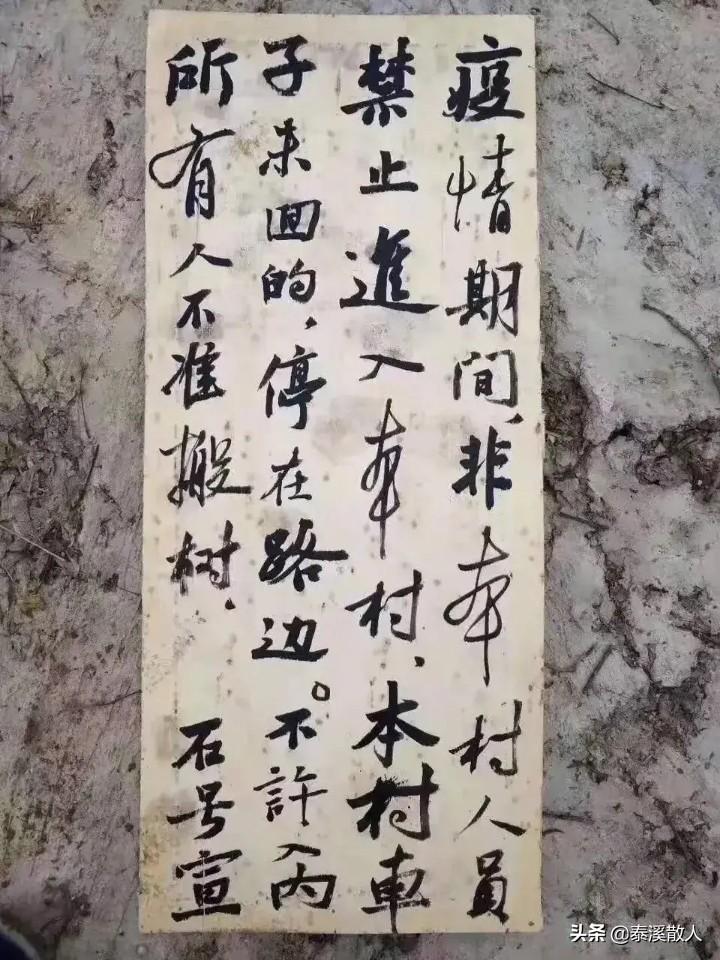 疫情期间，非本村人员
禁止進入本村、本村車
子未回的，停在路边。不許入内
所有人不准搬树.
石号宣
头条 @泰溪散人